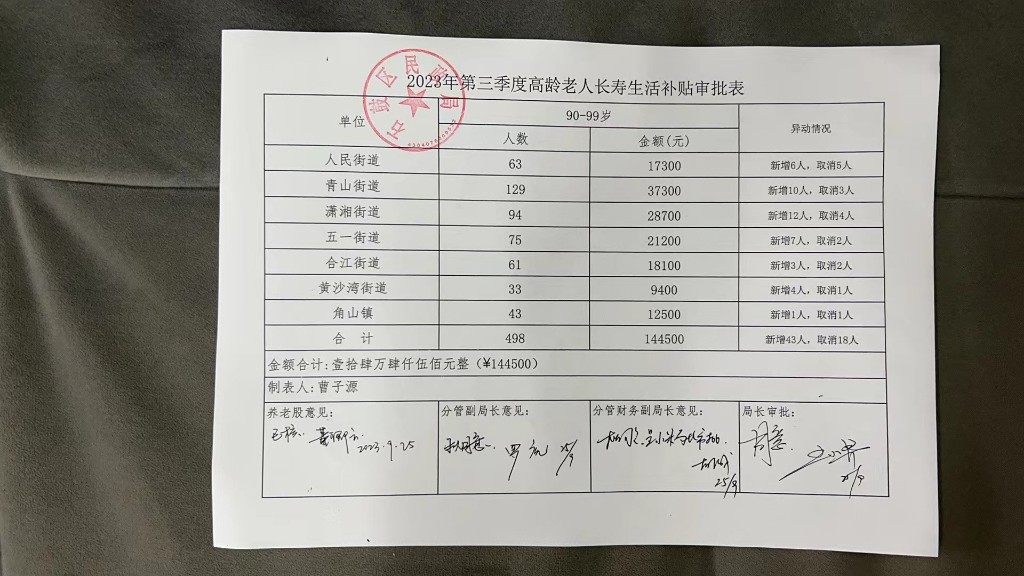 石鼓区民政局
2023年第三季度高龄老人长寿生活补贴审批表
单位 90-99岁 异动情况
人数 金额(元)
人民街道 63 17300 新增6人，取消5人
青山街道 129 37300 新增10人，取消3人
潇湘街道 94 28700 新增12人，取消4人
五一街道 75 21200 新增7人，取消2人
合江街道 61 18100 新增3人，取消2人
黄沙湾街道 33 9400 新增4人，取消1人
角山镇 43 12500 新增1人，取消1人
合 计 498 144500 新增43人，取消18人
金额合计:壹拾肆万肆仟伍佰元整（¥144500）
制表人:曹子源
养老股意见: 分管副局长意见: 分管财务副局长意见: 局长审批:
已核. 2023.9.25
拟同意. 25/9
25/9
同意. 25/9